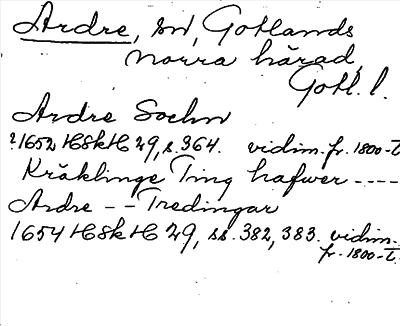 Ardre, sn, Gotlands
norra härad,
Gotl. l.
Ardre Sochn
?1652 HSkH 29, s. 364. vidim. fr. 1800-t.
Kräklinge Ting hafwer ----
Ardre -- Tredingar
1654 HSkH 29, ss. 382, 383. vidim.
fr. 1800-t.